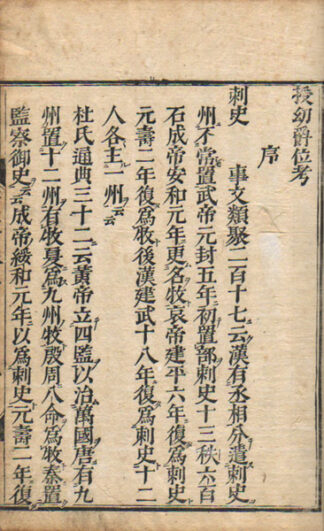 授幼爵位考
序
刺史 事文類聚二百十七云漢有丞相分遣刺史
州不常置武帝元封五年初置部刺史十三秩六百
石成帝安和元年更名牧哀帝建平六年復爲刺史
元壽二年復爲牧後漢建武十八年復爲刺史十二
人各主一州云云
杜氏通典三十二云黄帝立四監以治萬國唐有九
州置十二州有牧夏爲九州牧殷周八命爲牧秦置
監察御史云云成帝綏和元年以爲刺史元壽二年復